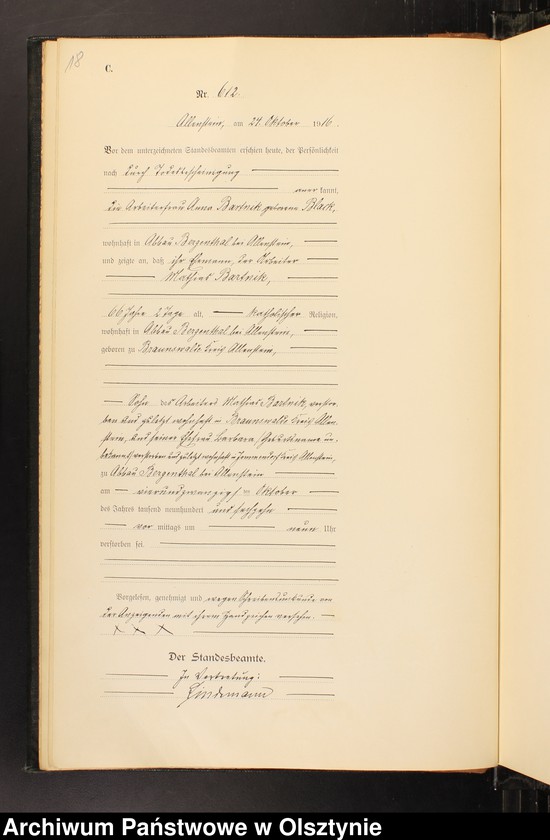 18
C.
Nr. 612.
Allenstein, am 24. Oktober 1916.
Vor dem unterzeichneten Standesbeamten erschien heute, der Persönlichkeit
nach durch Todesbescheinigung
anerkannt,
die Arbeiterfrau Anna Bartnik geborene Black,
wohnhaft in Abbau Bergenthal bei Allenstein,
und zeigte an, daß ihr Ehemann, der Arbeiter
Mathias Bartnik,
66 Jahre 2 Tage alt, katholischer Religion,
wohnhaft in Abbau Bergenthal bei Allenstein,
geboren zu Braunswalde Kreis Allenstein,
Sohn des Arbeiters Mathias Bartnik, verstor-
ben und zuletzt wohnhaft in Braunswalde Kreis Allen-
stein, und seiner Ehefrau Barbara, Geburtsname un-
bekannt, verstorben und zuletzt wohnhaft in Kreis Allenstein,
zu Abbau Bergenthal bei Allenstein
am vierundzwanzigsten Oktober
des Jahres tausend neunhundert und sechzehn
vor mittags um neun Uhr
verstorben sei.
Vorgelesen, genehmigt und wegen Schreibensunkunde von
der Anzeigenden mit ihrem Handzeichen versehen.
x x x
Der Standesbeamte.
In Vertretung:
Lindemann
Archiwum Państwowe w Olsztynie